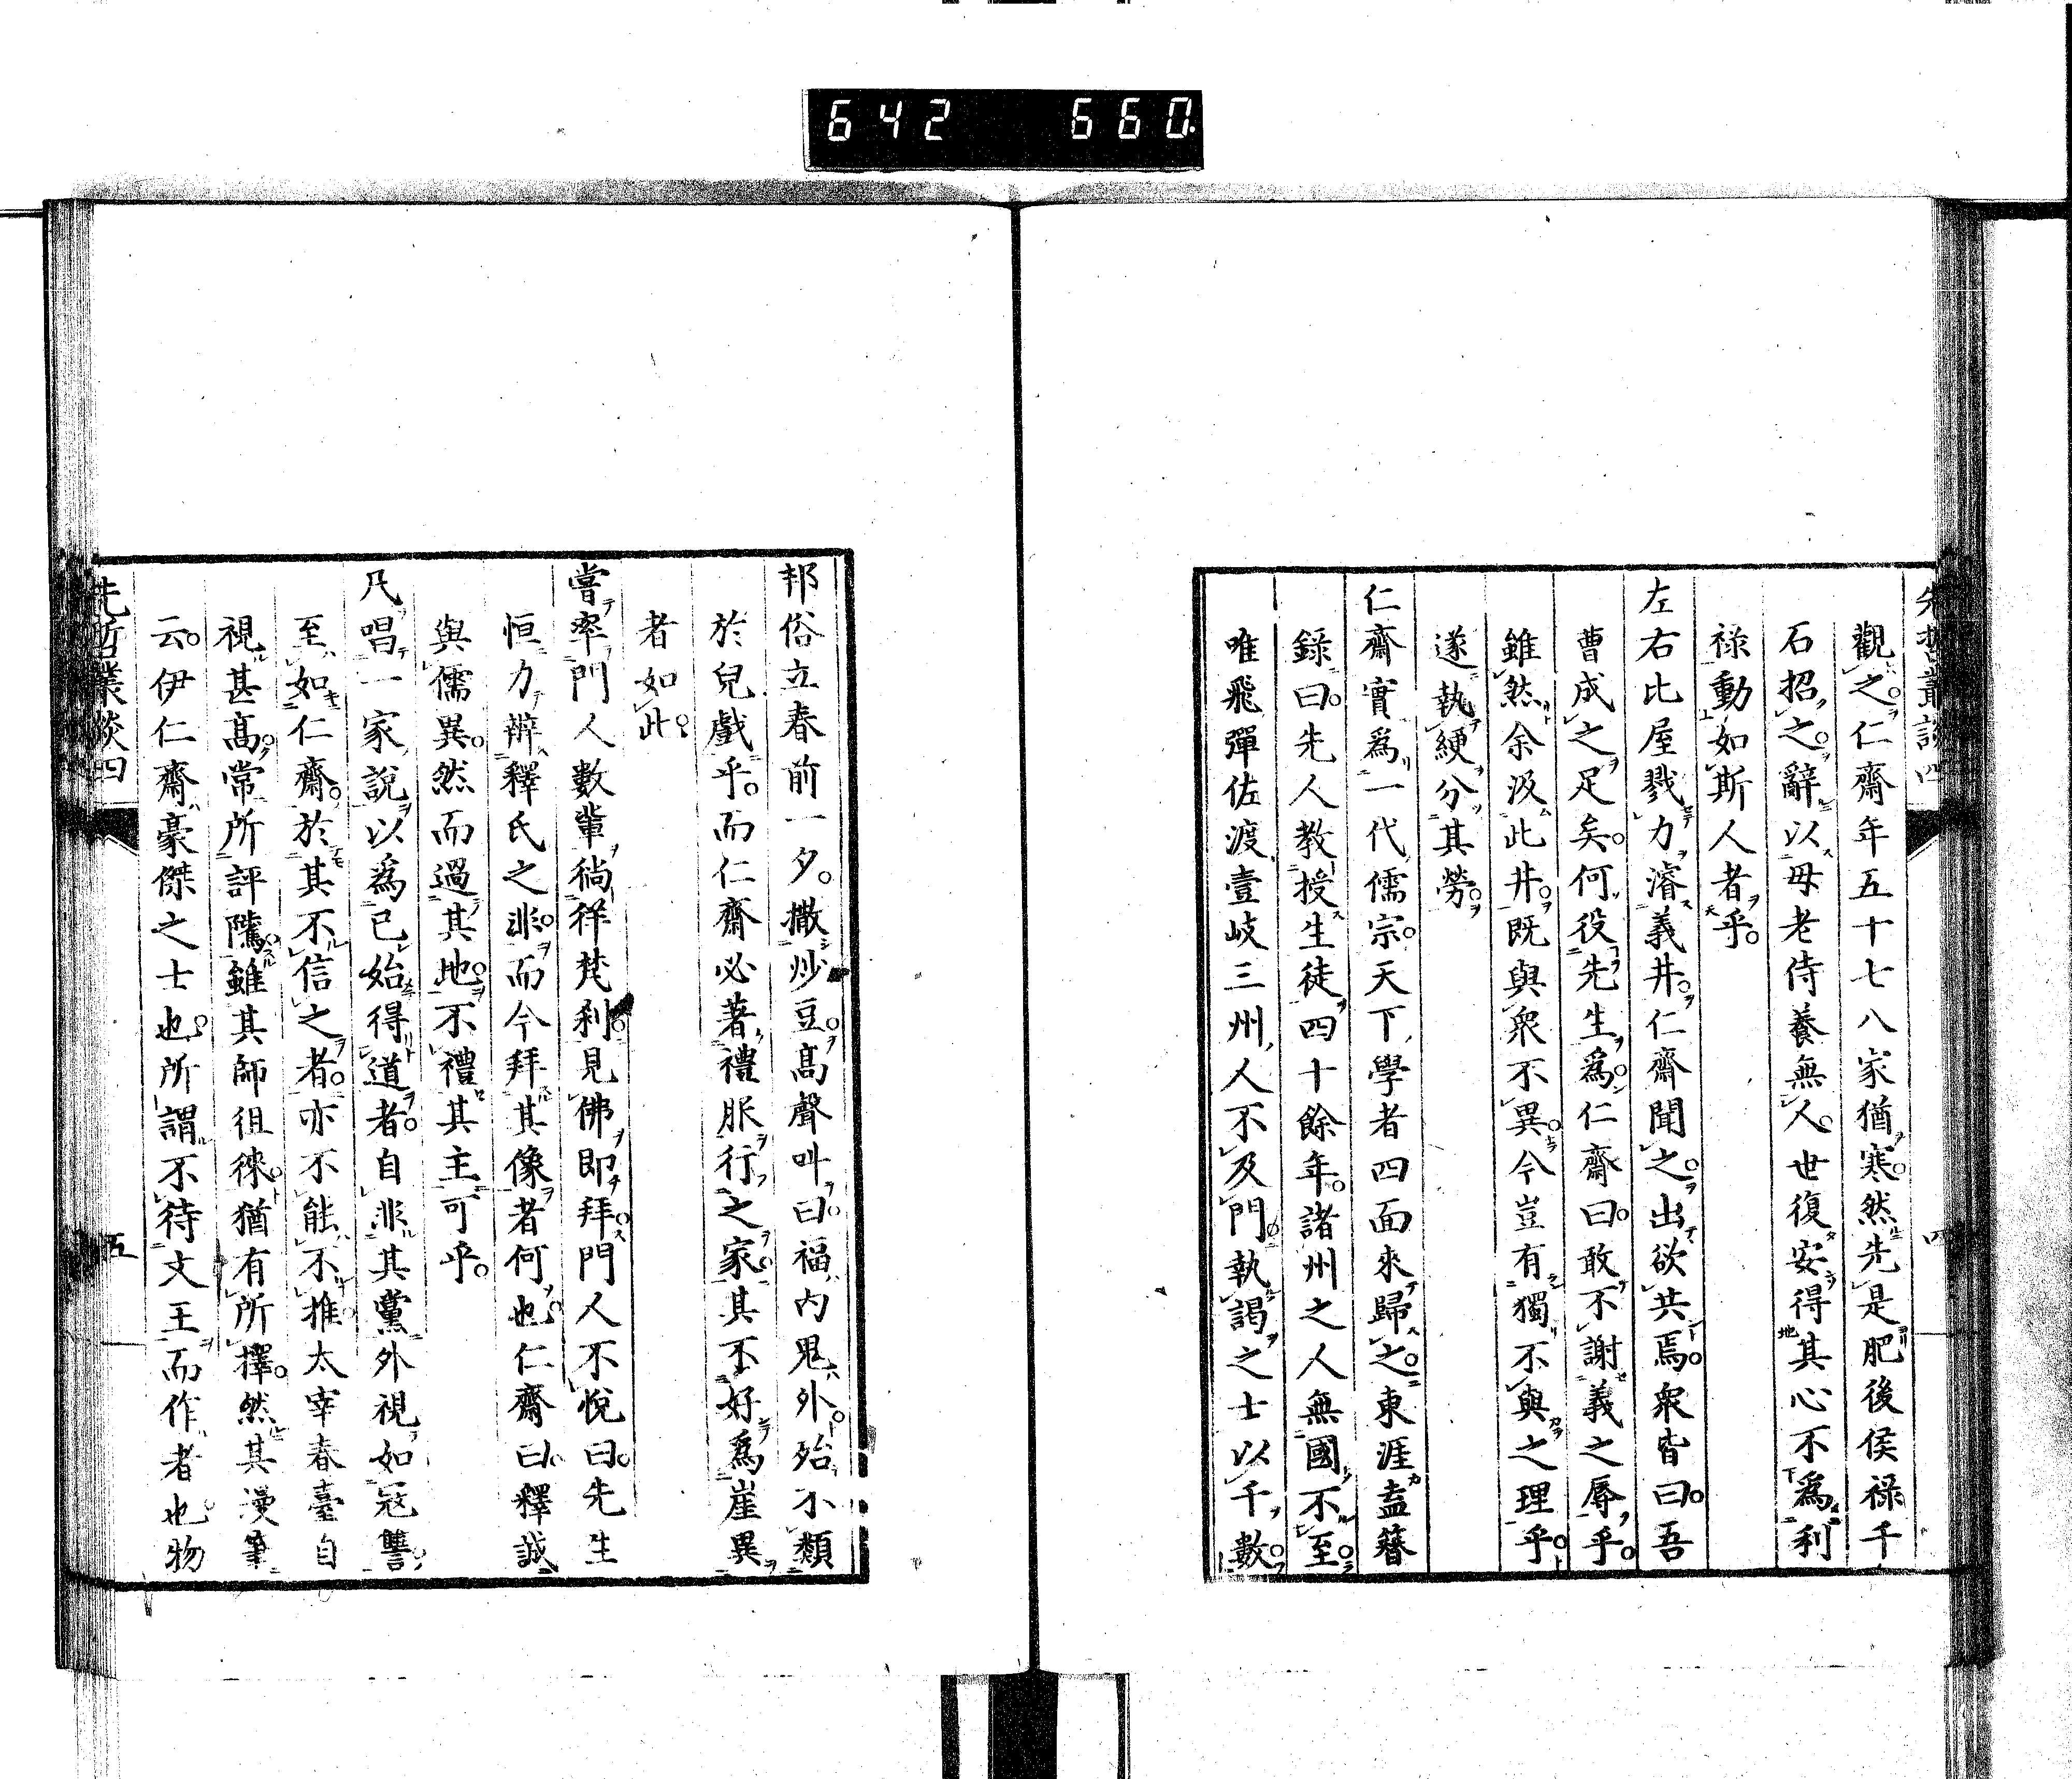 642 660
先哲叢談四
四
觀之。仁齋年五十七八家猶寒。然先是肥後侯祿千
石招之。辭以母老侍養無人。世復安得其心不爲利
祿動如斯人者乎。
左右比屋戮力濬義井。仁齋聞之。出欲共焉。衆皆曰。吾
曹成之足矣。何役先生爲。仁齋曰。敢不謝義之辱乎。
雖然余汲此井。既與衆不異。今豈有獨不與之理乎。
遂執綆分其勞。
仁齋實爲一代儒宗。天下學者四面來歸之。東涯盍簪
錄曰。先人教授生徒四十餘年。諸州之人無國不至。
唯飛彈佐渡壹岐三州人不及門。執謁之士以千數。
邦俗立春前一夕。撒炒豆。高聲叫曰。福內鬼外。殆不類
於兒戲乎。而仁齋必著禮服行之家。其不好爲崖異
者如此。
嘗率門人數輩徜徉梵刹。見佛即拜。門人不悅曰。先生
恒力辨釋氏之非。而今拜其像者何也。仁齋曰。釋誠
與儒異。然而過其地。不禮其主可乎。
凡唱一家說以爲已始得道者。自非其黨外視如寇讐
至如仁齋。於其不信之者。亦不能不推太宰春臺自
視甚高。常所評騭雖其師徂徠。猶有所擇。然其漫筆
云。伊仁齋豪傑之士也。所謂不待文王而作者也物
先哲叢談四
五